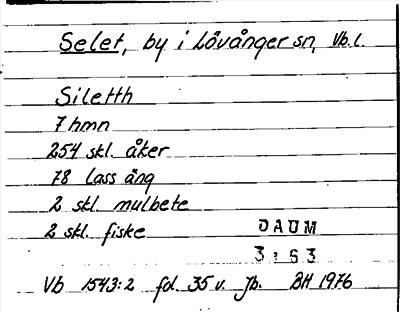 Selet, by i Lövånger sn, Vb.l.
Siletth
7 hmn
254 skl. åker
78 lass äng
2 skl. mulbete
2 skl. fiske
DAUM
3:63
Vb 1543:2 fol. 35 v. Jb. BH 1976